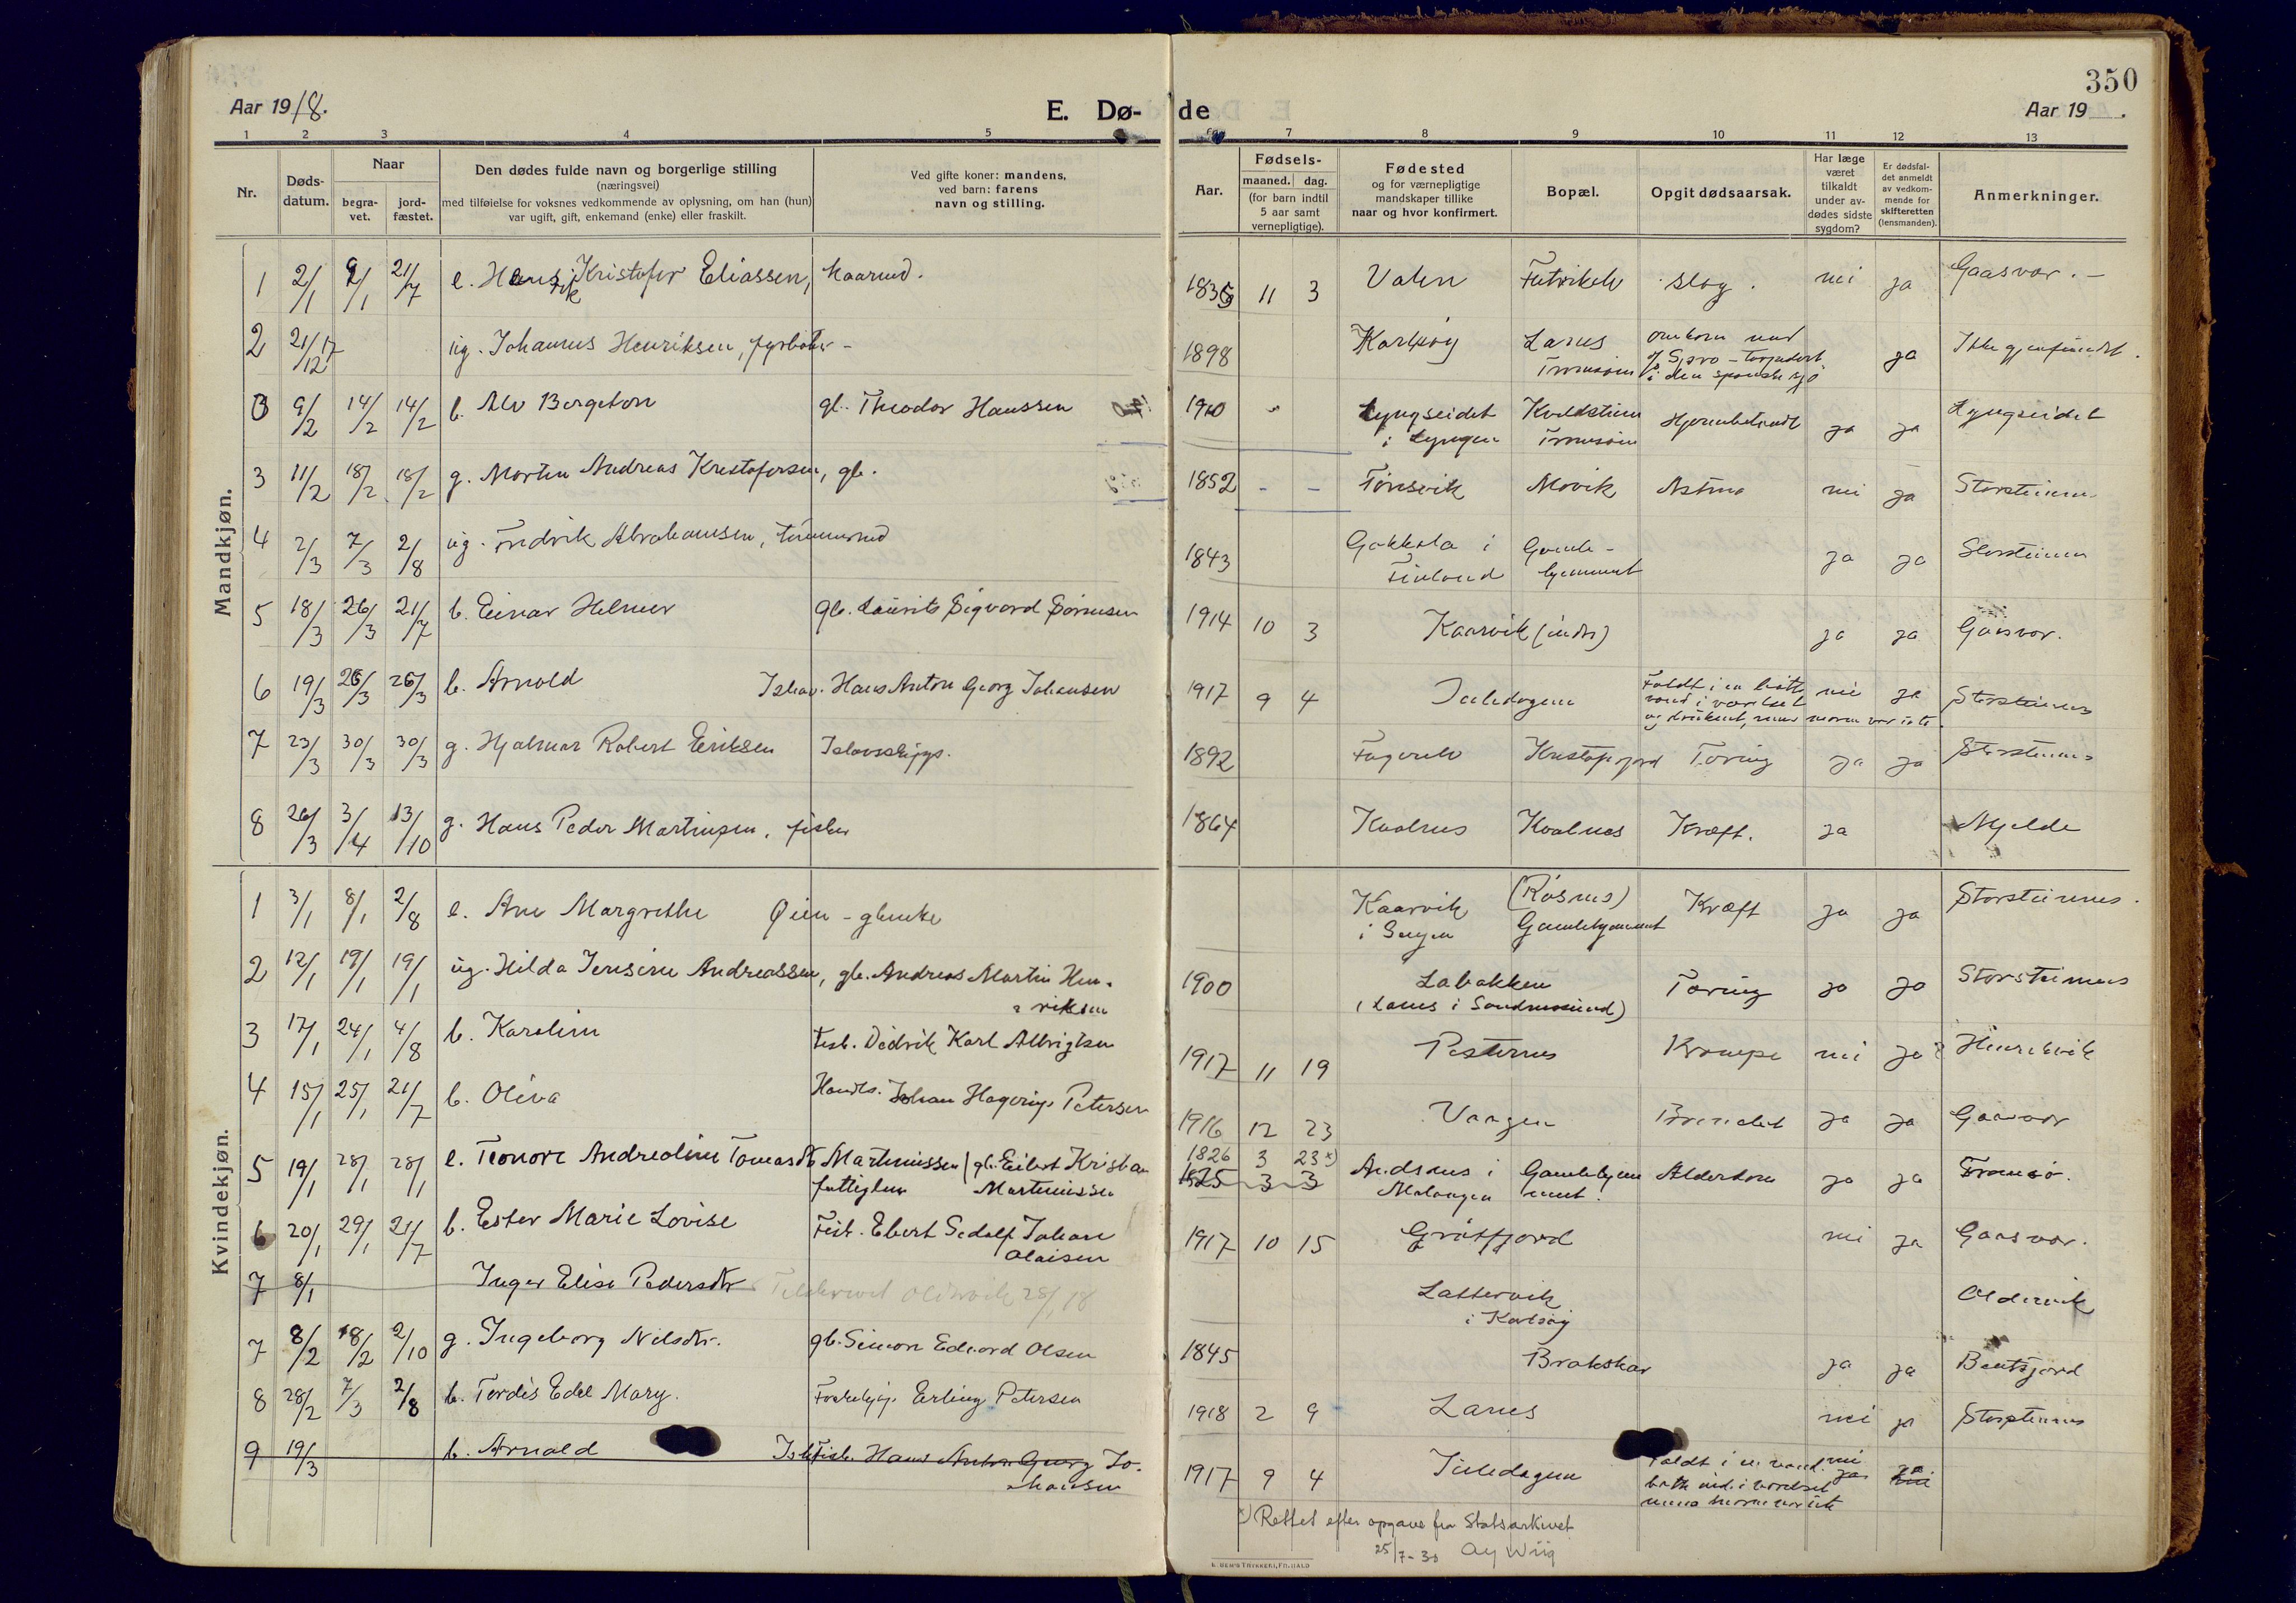 350
Aar 1918.
E. Dø- de
Aar 19 .
1 2 3 4 5 6 7 8 9 10 11 12 13
Nr.
Døds-
datum.
Naar
begra-
vet.
jord-
fæstet.
Den dødes fulde navn og borgerlige stilling
(næringsvei)
med tilføielse for voksnes vedkommende av oplysning, om han (hun)
var ugift, gift, enkemand (enke) eller fraskilt.
Ved gifte koner: mandens,
ved barn: farens
navn og stilling.
Aar.
Fødsels-
maaned. dag.
(for barn indtil
5 aar samt
vernepligtige).
Fødested
og for værnepligtige
mandskaper tillike
naar og hvor konfirmert.
Bopæl.
Opgit dødsaarsak.
Har læge
været
tilkaldt
under av-
dødes sidste
sygdom?
Er dødsfal-
det anmeldt
av vedkom-
mende for
skifteretten
(lensmanden).
Anmerkninger.
Mandkjøn.
1 2/1 9/1 21/7 e. Kristofer Eliassen, 11 3 Valen slag. nei ja Gaasvær.
2 21/12 17 ug. Johannes Henriksen, fyrbøter 1898 Karlsøy Lanes
Tromsøsu i den spanske sjø ja Ikke gjenfundet.
3 9/2 14/2 14/2 b. Alv Bergeton gb. Theodor Hanssen 1910 Lyngseidet
i Lyngen Tromsøsu Hjernebetændt ja ja Lyngseidet
3 11/2 18/2 18/2 g. Morten Andreas Kristofersen, gb. 1852 - - Tønsvik Movik Astma nei ja Storsteinnes
4 2/3 7/3 2/8 ug. Fredrik Abrahamsen, tømmermd 1843 i
Finland Gamle-
hjemmet ja ja Storsteinnes
5 18/3 26/3 21/7 b. Einar Helmer gb. Laurits Sigvard Sørensen 1914 10 3 Kaarvik (indre) ja ja Gaasvær.
6 19/3 26/3 26/3 b. Arnold Ishav. Hans Anton Georg Johansen 1917 9 4 Juledagen Faldt i en bøtte
vand i værelset
og druknet, mens moren var ute. nei ja Storsteinnes
7 23/3 30/3 30/3 g. Hjalmar Robert Eriksen Ishavsskipp. 1892 Fagerelv Tæring ja ja Storsteinnes
8 26/3 3/4 13/10 g. Hans Peder Martinsen, fisker 1864 Kvalnes Kvalnes Kræft. ja Mjelde
Kvindekjøn.
1 3/1 8/1 2/8 e. Ane Margrethe Øien - gbenke Kaarvik
(Røsnes)
Gamlehjemmet Kræft ja ja Storsteinnes.
2 12/1 19/1 19/1 ug. Hilda Jensine Andreassen, gb. Andreas Martin Hen-
riksen 1900 Labakken
(Lanes i Sandnessund) Tæring ja ja Storsteinnes
3 17/1 24/1 4/8 b. Karoline fisk. Didrik Karl Albrigtsen 1917 11 19 Krampe nei ja Henrikvik
4 15/1 25/1 21/7 b. Oliva Handls. Johan Hagerup Petersen 1916 12 23 Vaagen ja ja Gaasvær
5 19/1 28/1 28/1 e. Leonore Andreoline Tomasdtr Martinussen gb. Eilert Kristian
fattiglem Martinussen
1826 3 23 *)
1825 3 3
Andsnes i
Malangen Gamlehjem-
met. Alderdom ja ja Tromsø.
6 20/1 29/1 21/7 b. Ester Marie Lovise Fisk. Ebert Sedolf Johan
Olaisen 1917 10 15 Grøtfjord nei ja Gaasvær.
7 8/1 Inger Elise Pedersdtr Oldervik 28/1 18 Lattervik
i Karlsøy Oldervik
7 8/2 18/2 2/10 g. Ingeborg Nilsdtr. gb. Simon Edvard Olsen 1845 Brakskar ja ja Bentsjord
8 28/2 7/3 2/8 b. Tordis Edel Mary. Erling Petersen 1918 2 9 Lanes nei ja Storsteinnes
9 19/3 b. Arnold Fisk. Hans Anton Georg Jo-
hansen 1917 9 4 Juledagen Faldt i en vand-
bøtte ind i værelset
mens moren var ute nei
ja
*) Rettet efter opgave fra Statsarkivet
25/7-30 Wiig